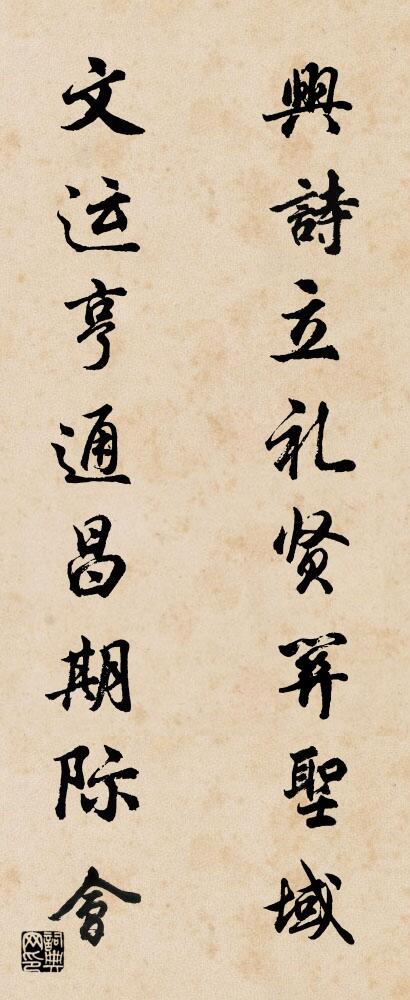 興詩立礼贤關聖域
文运亨通昌期际會
詞典网印